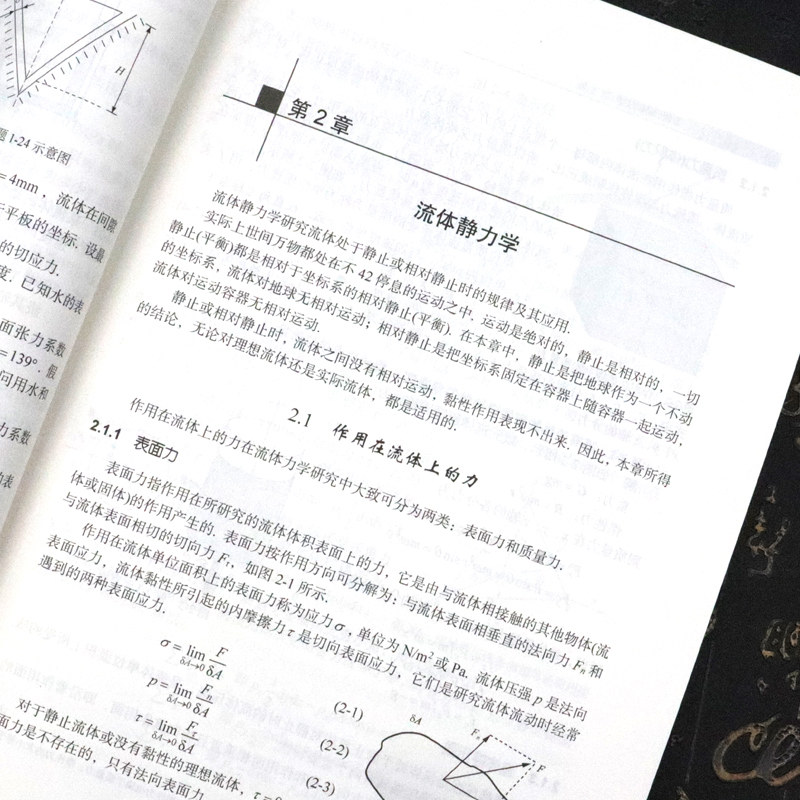 H
1-24 示意图
=4mm，流体在间隙
平板的坐标. 设最
的切应力.
度. 已知水的表
面张力系数
=139°. 假
问用水和
力系数
第 2 章
流体静力学
流体静力学研究流体处于静止或相对静止时的规律及其应用.
实际上世间万物都处在不 42 停息的运动之中. 运动是绝对的，静止是相对的，一切
静止(平衡)都是相对于坐标系的相对静止(平衡). 在本章中，静止是把地球作为一个不动
的坐标系，流体对地球无相对运动；相对静止是把坐标系固定在容器上随容器一起运动，
流体对运动容器无相对运动.
静止或相对静止时，流体之间没有相对运动，黏性作用表现不出来. 因此，本章所得
的结论，无论对理想流体还是实际流体，都是适用的.
2.1 作用在流体上的力
作用在流体上的力在流体力学研究中大致可分为两类：表面力和质量力.
2.1.1 表面力
表面力指作用在所研究的流体体积表面上的力，它是由与流体相接触的其他物体(流
体或固体)的作用产生的. 表面力按作用方向可分解为：与流体表面相垂直的法向力 Fn 和
与流体表面相切的切向力 Fτ，如图 2-1 所示.
作用在流体单位面积上的表面力称为应力 σ，单位为 N/m² 或 Pa. 流体压强 p 是法向
表面应力，流体黏性所引起的内摩擦力 τ 是切向表面应力，它们是研究流体流动时经常
遇到的两种表面应力.
σ = lim δA→0 F/δA (2-1)
p = lim δA→0 Fn/δA (2-2)
τ = lim δA→0 Fτ/δA (2-3)
δA
Fn
F
对于静止流体或没有黏性的理想流体，τ=
面力是不存在的，只有法向表面力